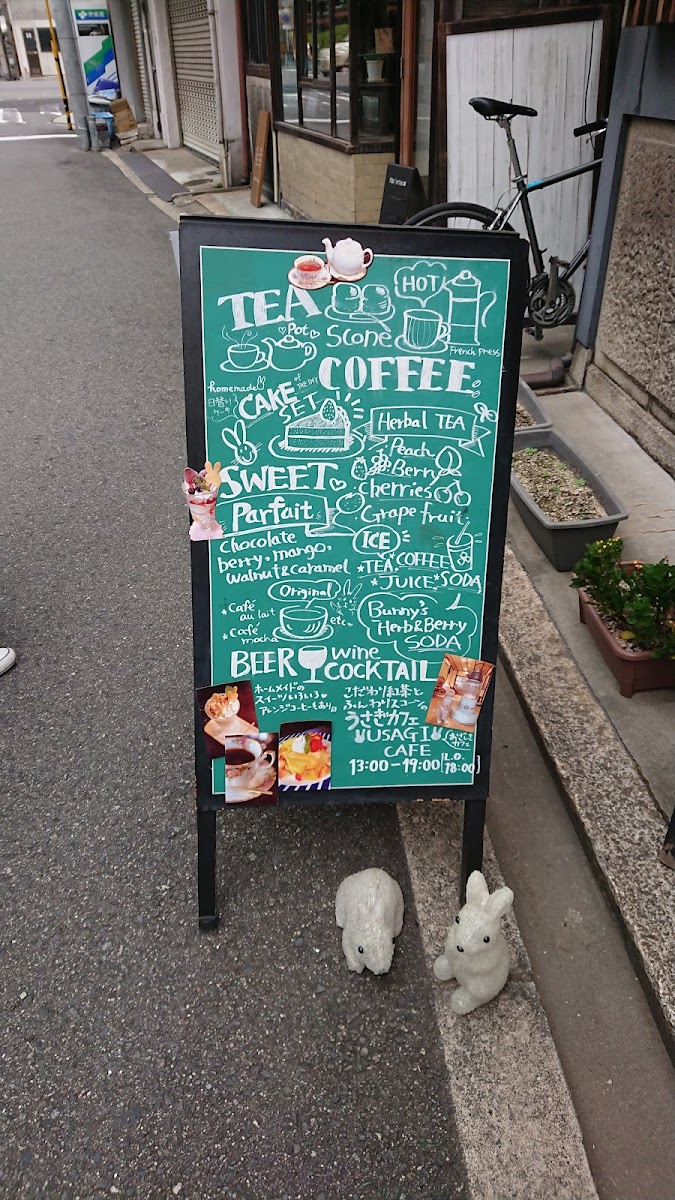 TEA
Pot
Scone
HOT
French press
COFFEE
homemade
日替り
ケーキ
CAKE OF THE DAY
SET
Herbal TEA
Peach
Berry
Cherries
Grape fruit
SWEET
Parfait
Chocolate
berry, mango,
walnut & caramel
ICE
★TEA★COFFEE
★JUICE★SODA
Original
★Café
au lait
★Café
mocha
etc~
Bunny's
Herb&Berry
SODA
BEER wine
COCKTAIL
ホームメイドの
スイーツいろいろ
アレンジコーヒーもあり
こだわり紅茶と
ふんわりスコーンの
うさぎカフェ
USAGI
CAFE
おざしき
カフェ
13:00-19:00 [L.O. 18:00]